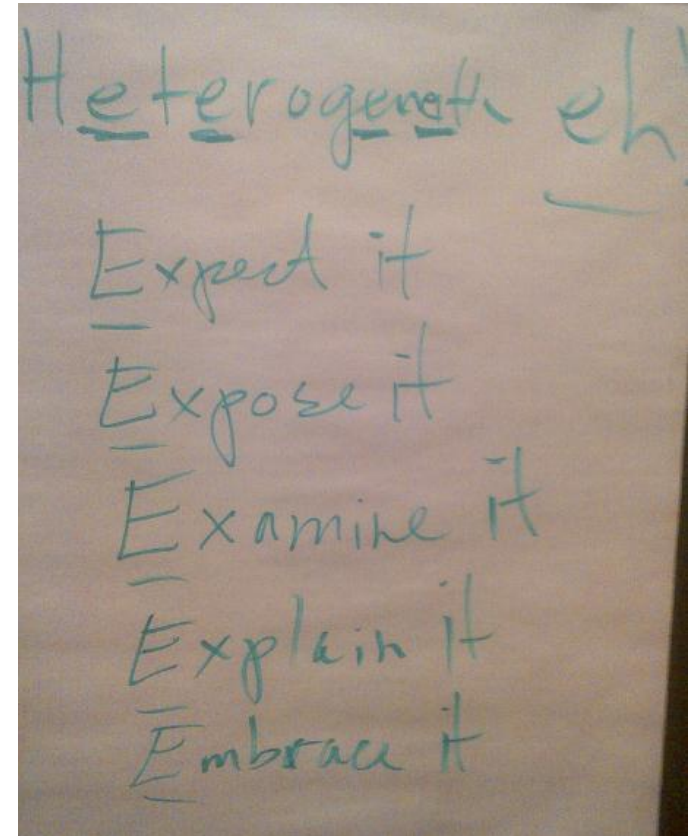 Heterogeneity eh!
Expect it
Expose it
Examine it
Explain it
Embrace it